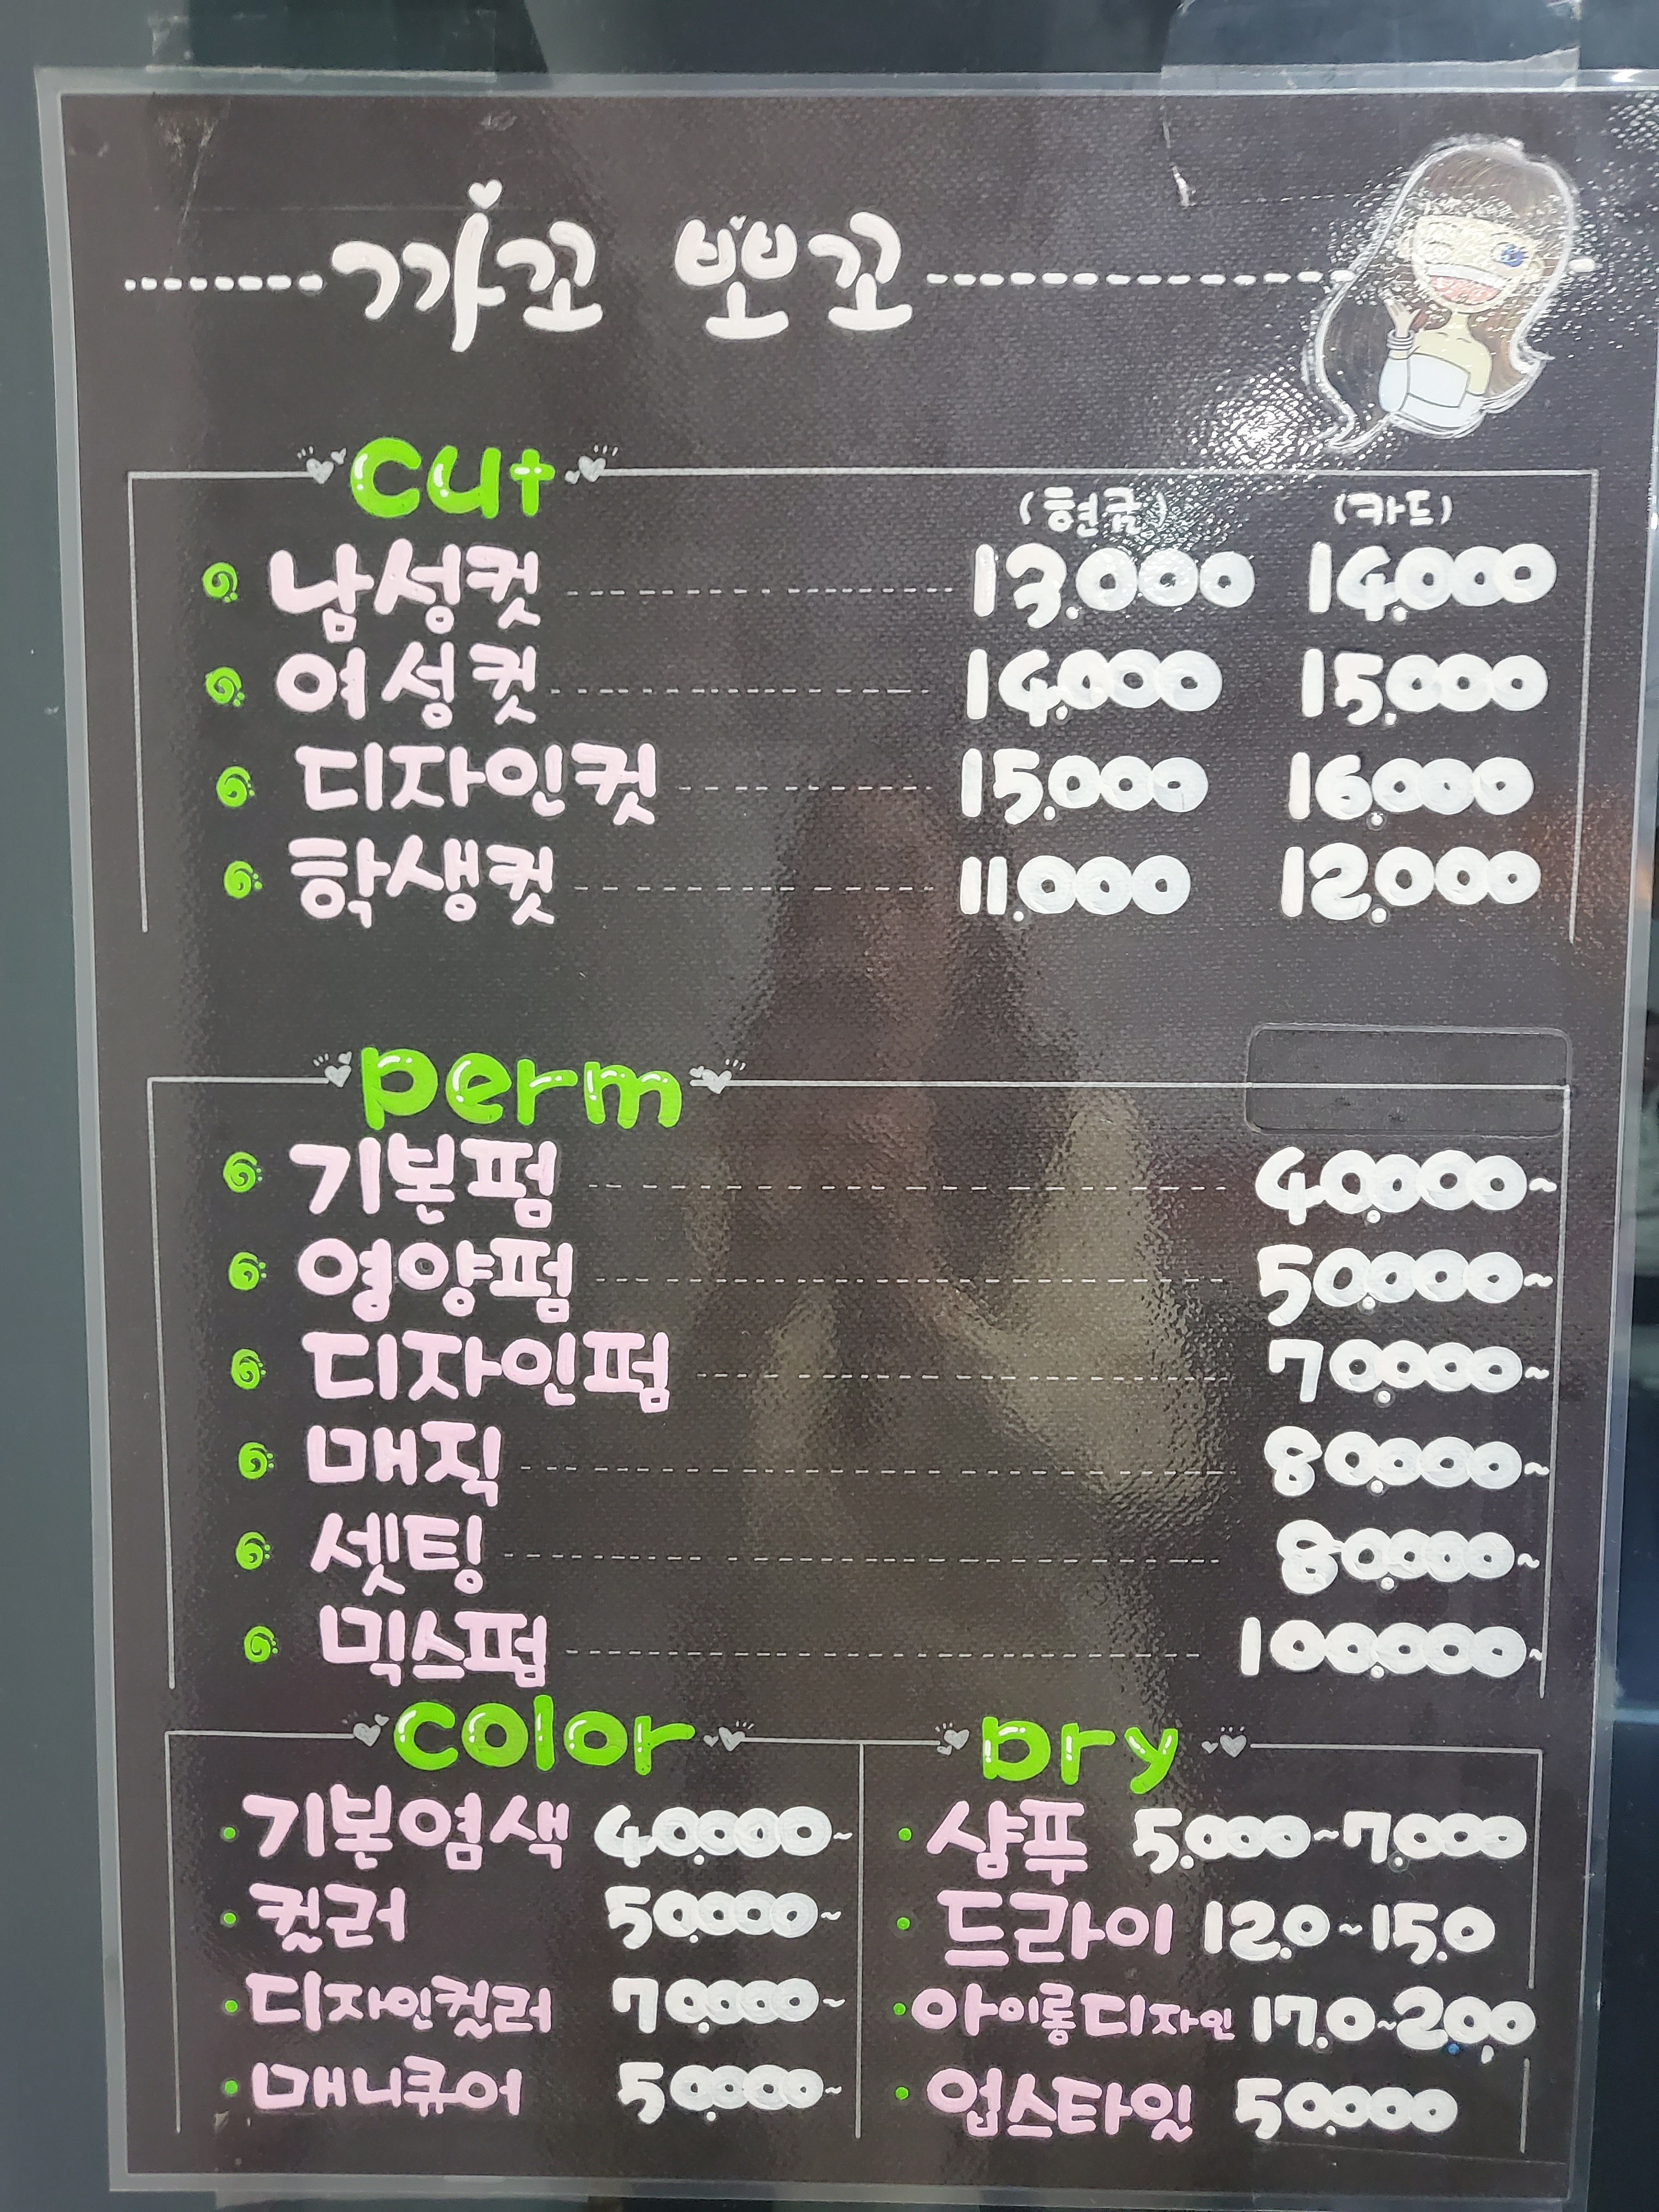 까꼬 뽀꼬
cut
(현금) (카드)
남성컷 13.000 14.000
여성컷 14.000 15.000
디자인컷 15.000 16.000
학생컷 11.000 12.000
perm
기본펌 40.000~
영양펌 50.000~
디자인펌 70.000~
매직 80.000~
셋팅 80.000~
믹스펌 100.000~
color
기본염색 40.000~
컬러 50.000~
디자인컬러 70.000~
매니큐어 50.000~
Dry
샴푸 5.000~7.000
드라이 12.0~15.0
아이롱디자인 17.0~20.0
업스타일 50.000